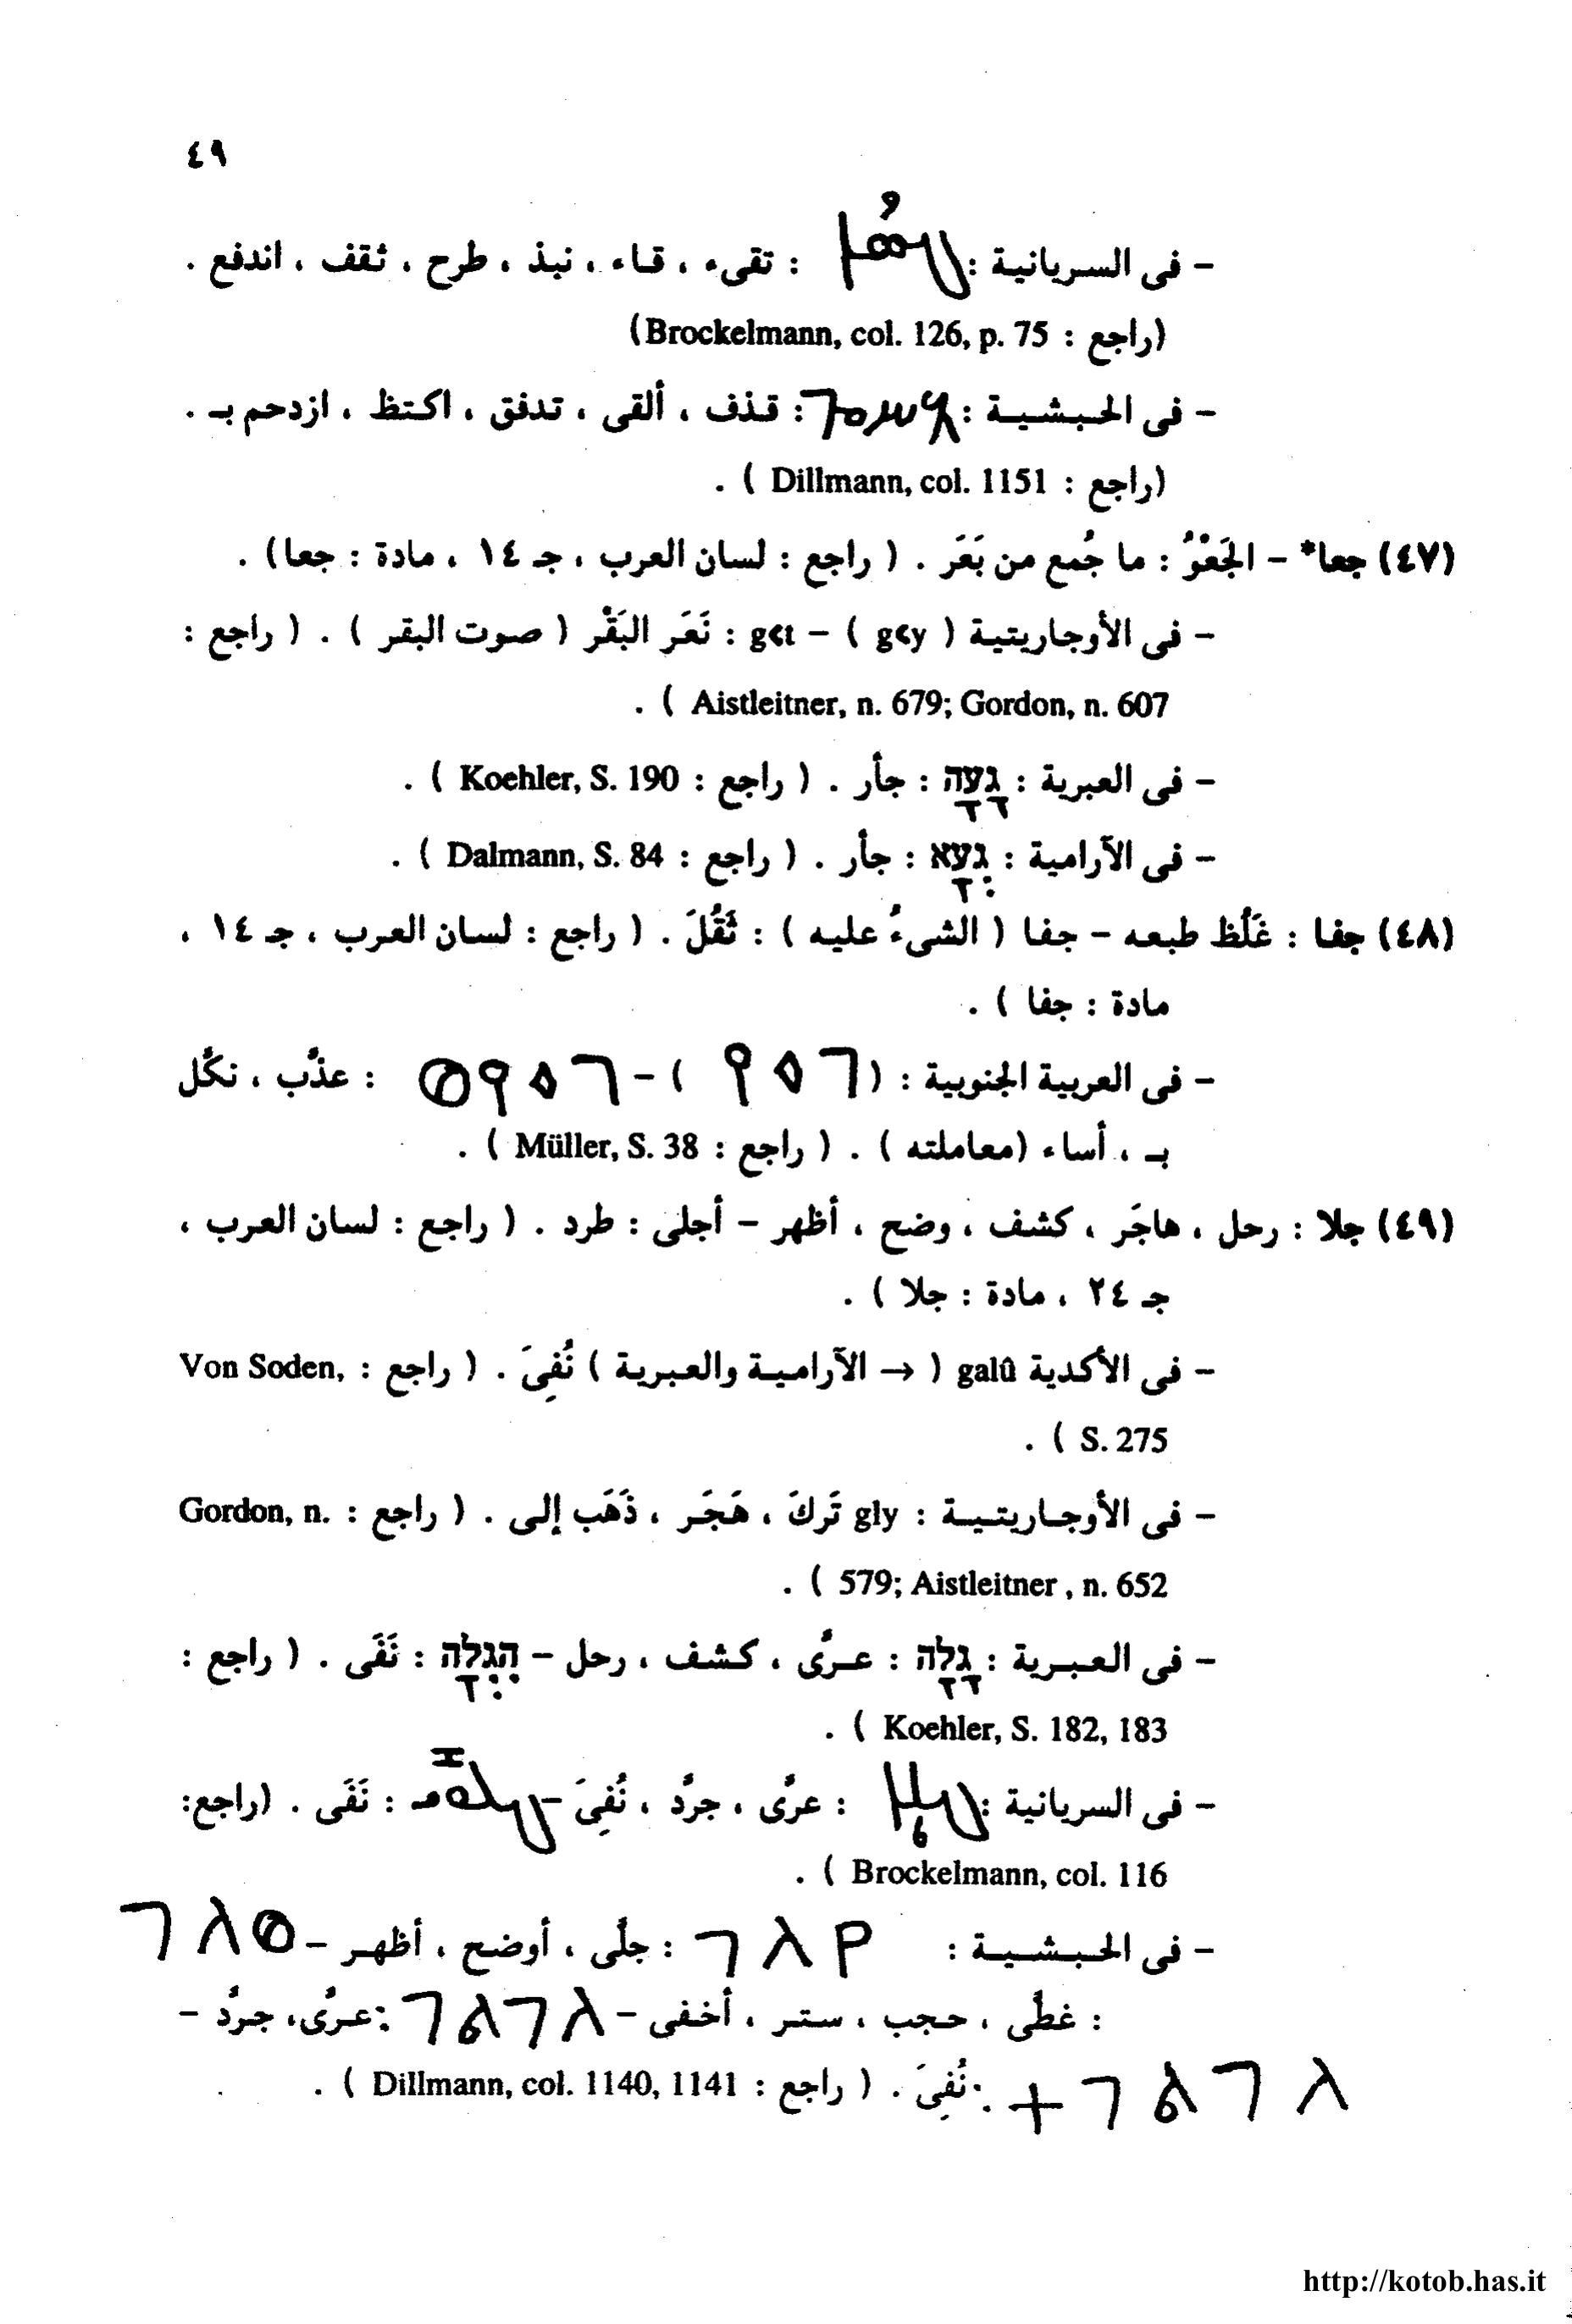 ٤٩
- فى السريانية : : تقىء ، قاء ، نبذ ، طرح ، ثقف ، اندفع .
(راجع : Brockelmann, col. 126, p. 75)
- فى الحبشية : : قذف ، ألقى ، تدفق ، اكتظ ، ازدحم بـ .
(راجع : Dillmann, col. 1151 ) .
(٤٧) جعا* - الجَعْوُ : ما جُمع من بَعَر . ( راجع : لسان العرب ، جـ ١٤ ، مادة : جعا) .
- فى الأوجاريتية ( g<y ) - g<t : نَعَر البَقْر ( صوت البقر ) . ( راجع :
Aistleitner, n. 679; Gordon, n. 607 ) .
- فى العبرية : גָּעָה : جأر . ( راجع : Koehler, S. 190 ) .
- فى الآرامية : גְּעָא : جأر . ( راجع : Dalmann, S. 84 ) .
(٤٨) جفا : غَلُظ طبعه - جفا ( الشىءُ عليه ) : ثَقُلَ . ( راجع : لسان العرب ، جـ ١٤ ،
مادة : جفا ) .
- فى العربية الجنوبية : ( ) - : عذَّب ، نكَّل
بـ ، أساء (معاملته ) . ( راجع : Müller, S. 38 ) .
(٤٩) جلا : رحل ، هاجَر ، كشف ، وضح ، أظهر - أجلى : طرد . ( راجع : لسان العرب ،
جـ ٢٤ ، مادة : جلا ) .
- فى الأكدية galû ( → الآرامية والعبرية ) نُفِىَ . ( راجع : Von Soden,
S. 275 ) .
- فى الأوجاريتية : gly تَركَ ، هَجَر ، ذَهَب إلى . ( راجع : Gordon, n.
579; Aistleitner , n. 652 ) .
- فى العبرية : גָּלָה : عرَّى ، كشف ، رحل - הִגְלָה : نَفَى . ( راجع :
Koehler, S. 182, 183 ) .
- فى السريانية : : عرَّى ، جرَّد ، نُفِىَ - : نَفَى . (راجع:
Brockelmann, col. 116 ) .
- فى الحبشية : : جلَّى ، أوضح ، أظهر -
: غطَّى ، حجب ، ستر ، أخفى - :عرَّى، جرَّد -
: نُفِىَ . ( راجع : Dillmann, col. 1140, 1141 ) .
http://kotob.has.it